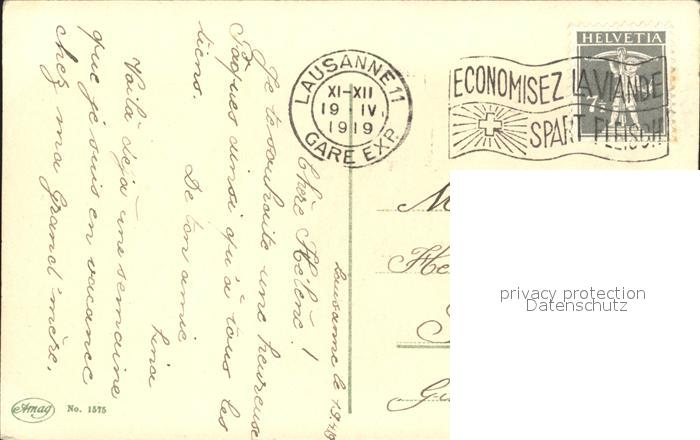 HELVETIA
7½
LAUSANNE 11
XI-XII
19 IV.
1919
GARE EXP.
ECONOMISEZ LA VIANDE
SPART FLEISCH
Lausanne le 19.4.19
Chère Hélène!
Je te souhaite une heureuse
Pâques ainsi qu'à tous les
tiens.
De ton amie
Lina
Voilà déjà une semaine
que je suis en vacance
chez ma grand'mère.
M
He
Ge
privacy protection
Datenschutz
Amag
No. 1575